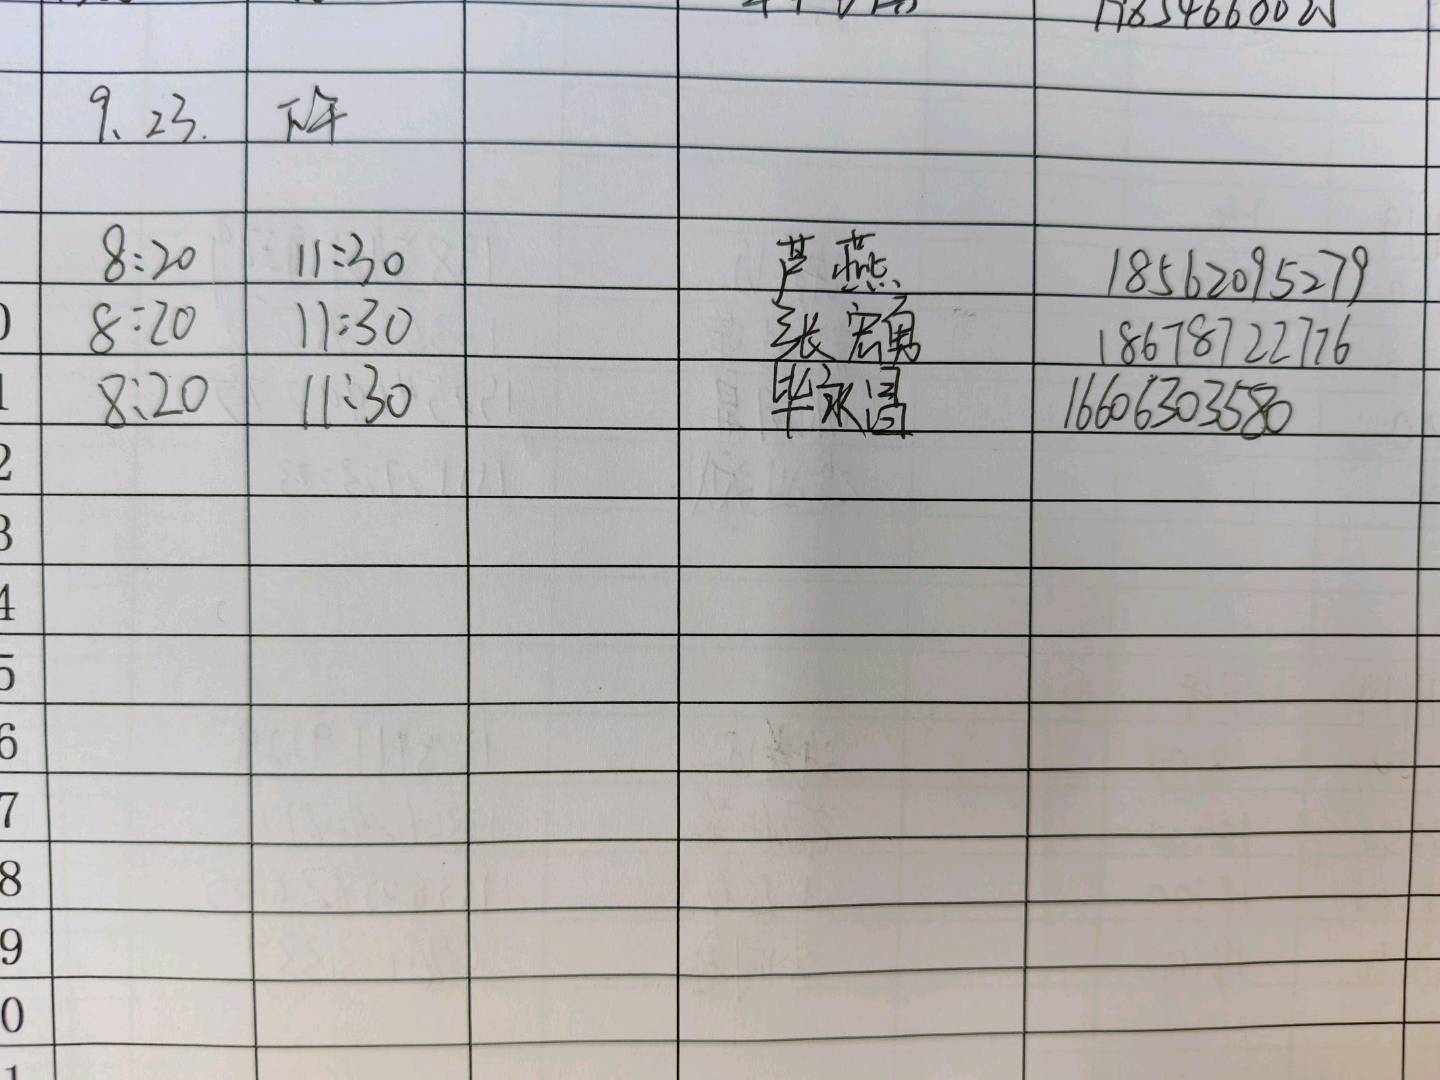 9.23. 下午
8:20 11:30 芦燕 18562095279
0 8:20 11:30 张宏勇 18678722776
1 8:20 11:30 毕永涓 16606303580
2
3
4
5
6
7
8
9
0
1